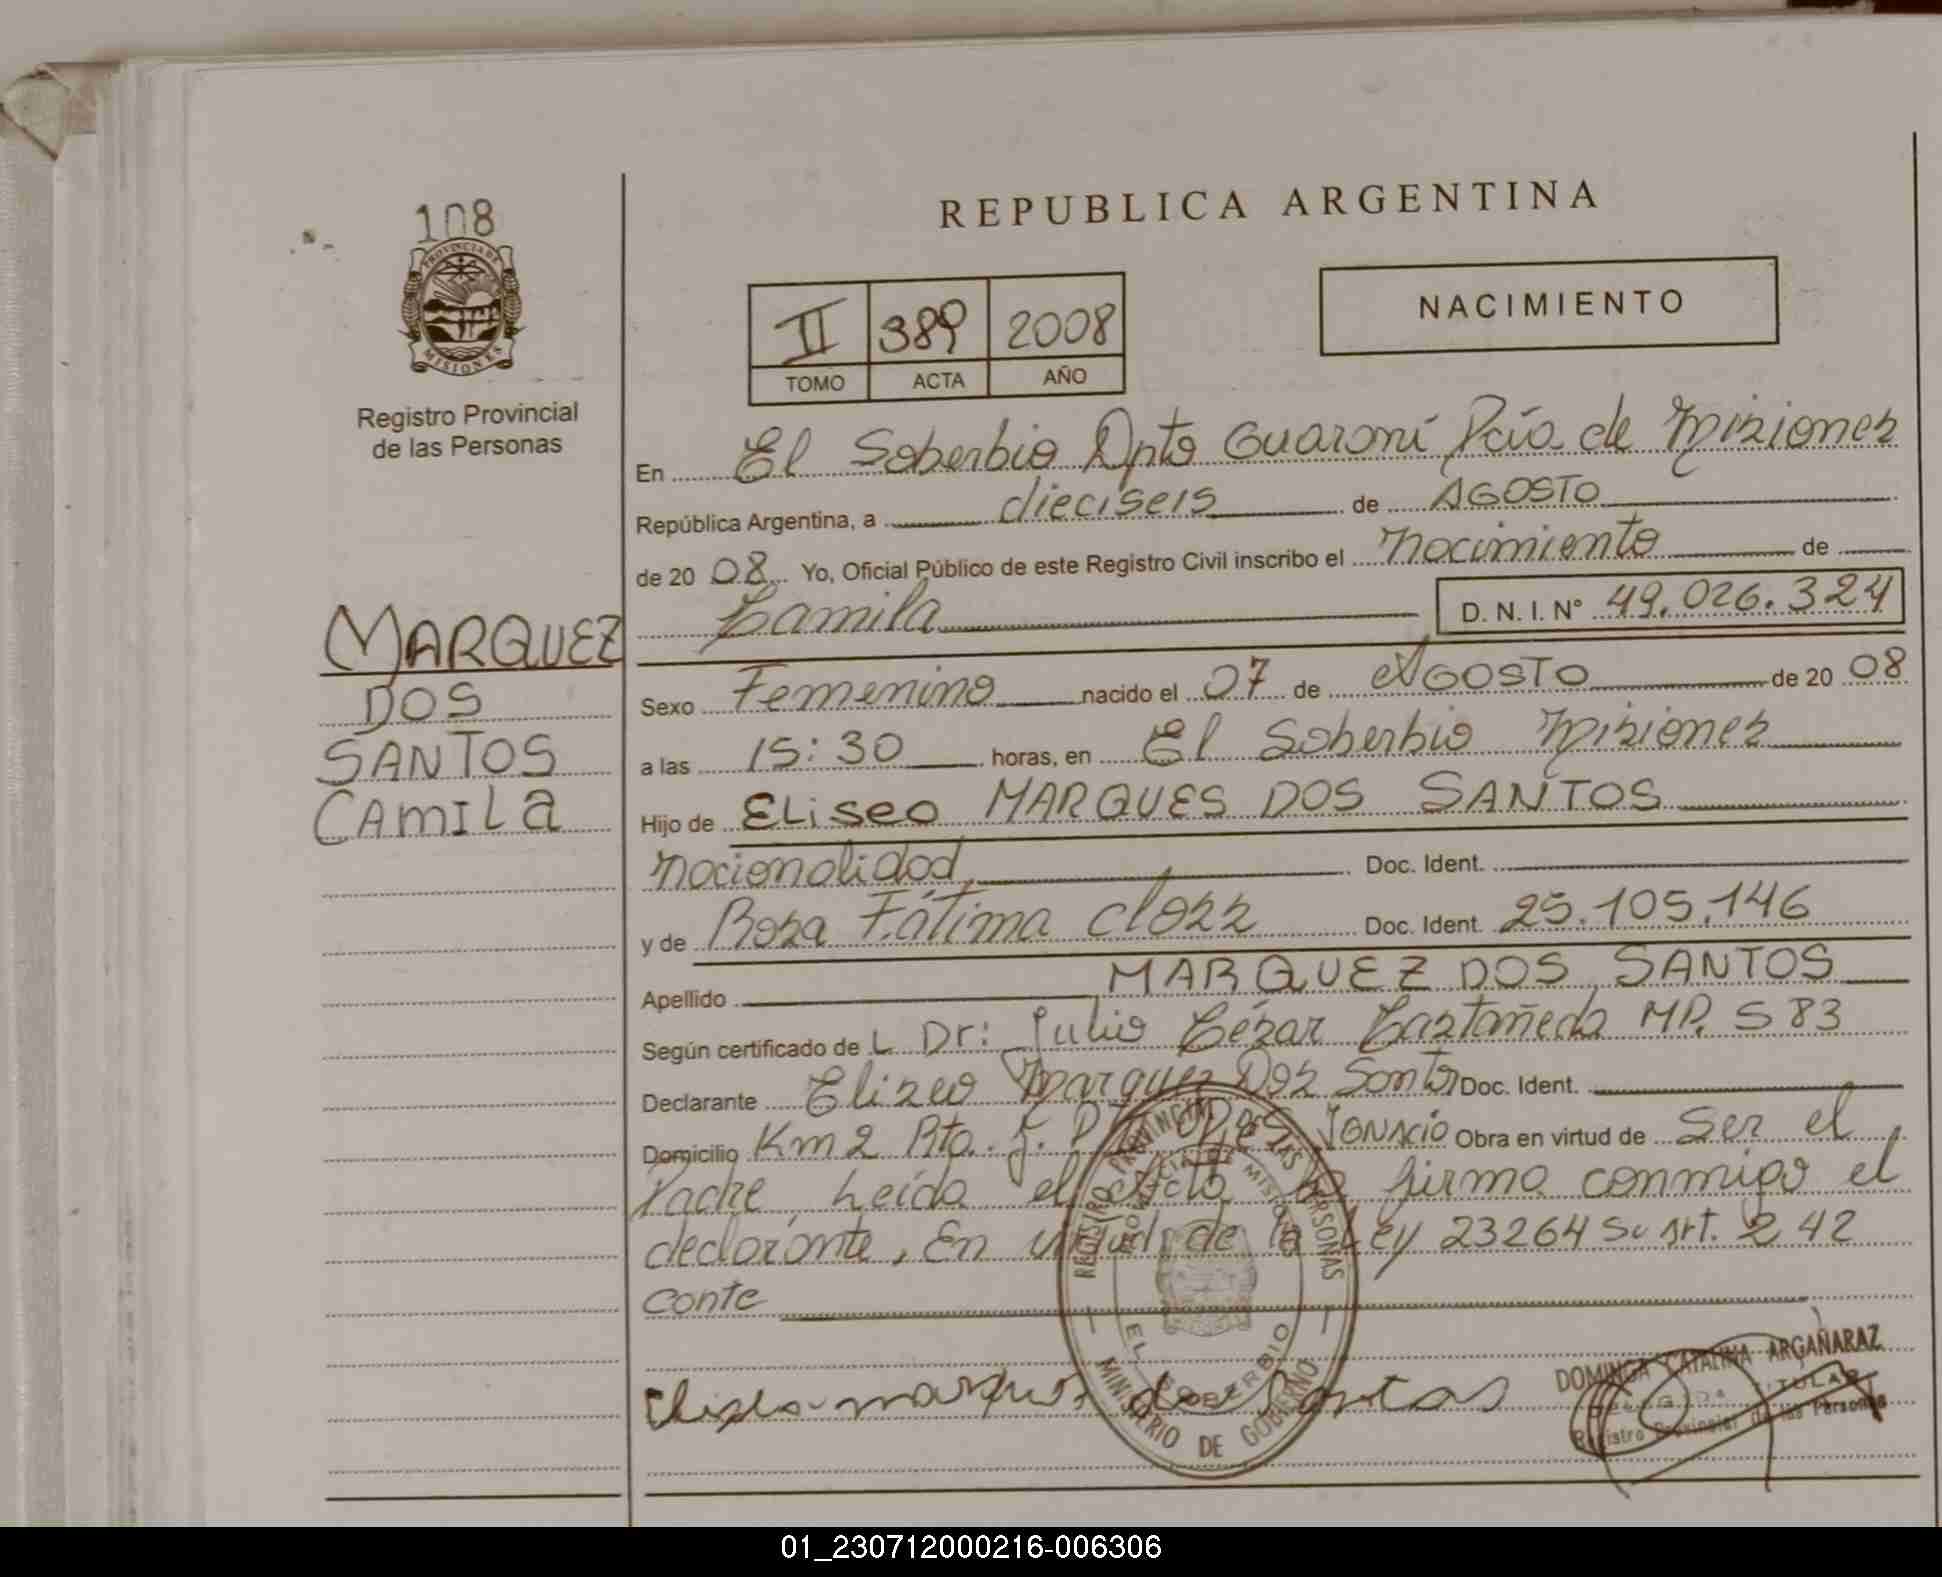 108
PROVINCIA DE
MISIONES
Registro Provincial
de las Personas
MARQUEZ
DOS
SANTOS
CAMILA
REPUBLICA ARGENTINA
II 389 2008
TOMO ACTA AÑO
NACIMIENTO
En El Soberbio Dpto Guaraní Pcia de Misiones
República Argentina, a dieciseis de AGOSTO
de 20 08 Yo, Oficial Público de este Registro Civil inscribo el Nacimiento de
Camila D. N. I. N° 49.026.324
Sexo Femenino nacido el 07 de AGOSTO de 20 08
a las 15:30 horas, en El Soberbio Misiones
Hijo de ELiseo MARQUES DOS SANTOS
Nacionalidad Doc. Ident.
y de Rosa Fátima Closs Doc. Ident. 25.105.146
Apellido MARQUEZ DOS SANTOS
Según certificado de L Dr: Julio César Castañeda MP. S 83
Declarante Eliseo Marquez Dos Santos Doc. Ident.
Domicilio Km 2 Rta. IGNACIO Obra en virtud de Ser el
Padre, Leída el acta la firma conmigo el
declarante, En virtud de la Ley 23264 Su Art. 2 42
conte
REGISTRO PROVINCIAL DE LAS PERSONAS
PROVINCIA DE MISIONES
EL SOBERBIO
MINISTERIO DE GOBIERNO
marques dos Santos
DOMINGA CATALINA ARGAÑARAZ
DELEGADA TITULAR
Registro Provincial de las Personas
01_230712000216-006306